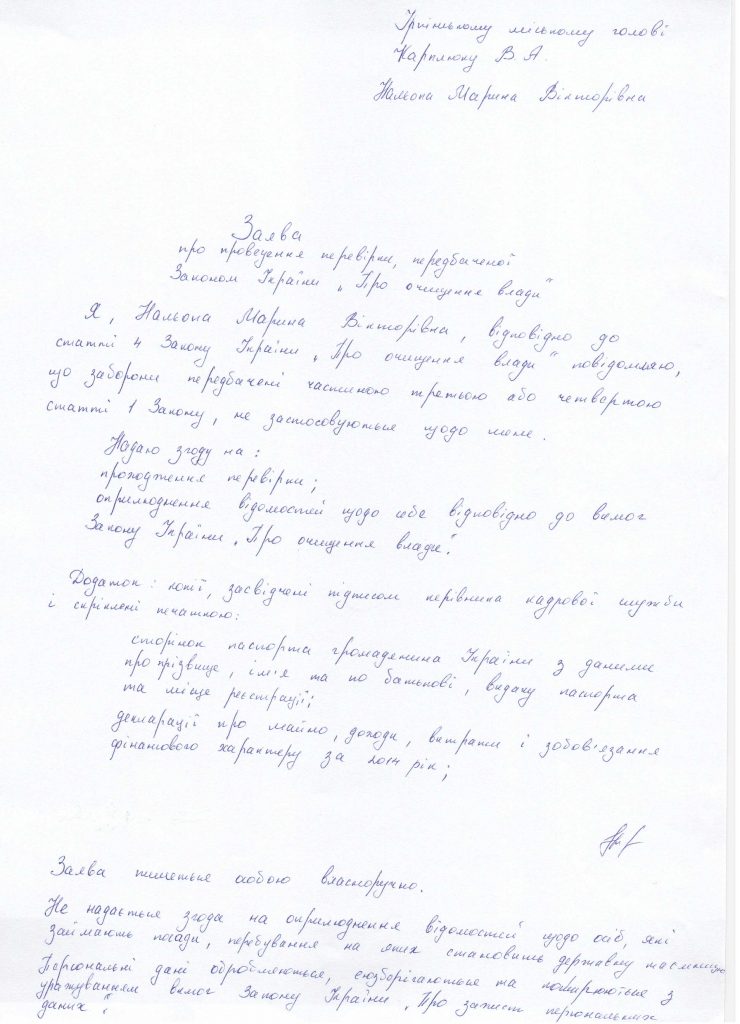 Ірпінському міському голові
Карплюку В. А.
Нальопа Марина Вікторівна
Заява
про проведення перевірки, передбаченої
Законом України „Про очищення влади“
Я, Нальопа Марина Вікторівна, відповідно до
статті 4 Закону України „Про очищення влади“ повідомляю,
що заборони передбачені частиною третьою або четвертою
статті 1 Закону, не застосовуються щодо мене.
Надаю згоду на:
проходження перевірки;
оприлюднення відомостей щодо себе відповідно до вимог
Закону України „Про очищення влади“.
Додаток: копії, засвідчені підписом керівника кадрової служби
і скріплені печаткою:
сторінок паспорта громадянина України з даними
про прізвище, ім'я та по батькові, видачу паспорта
та місце реєстрації;
декларації про майно, доходи, витрати і зобов'язання
фінансового характеру за 2014 рік;
Заява пишеться особою власноручно.
Не надається згода на оприлюднення відомостей щодо осіб, які
займають посади, перебування на яких становить державну таємницю
Персональні дані обробляються, зберігаються та поширюються з
уражуванням вимог Закону України „Про захист персональних
даних“.